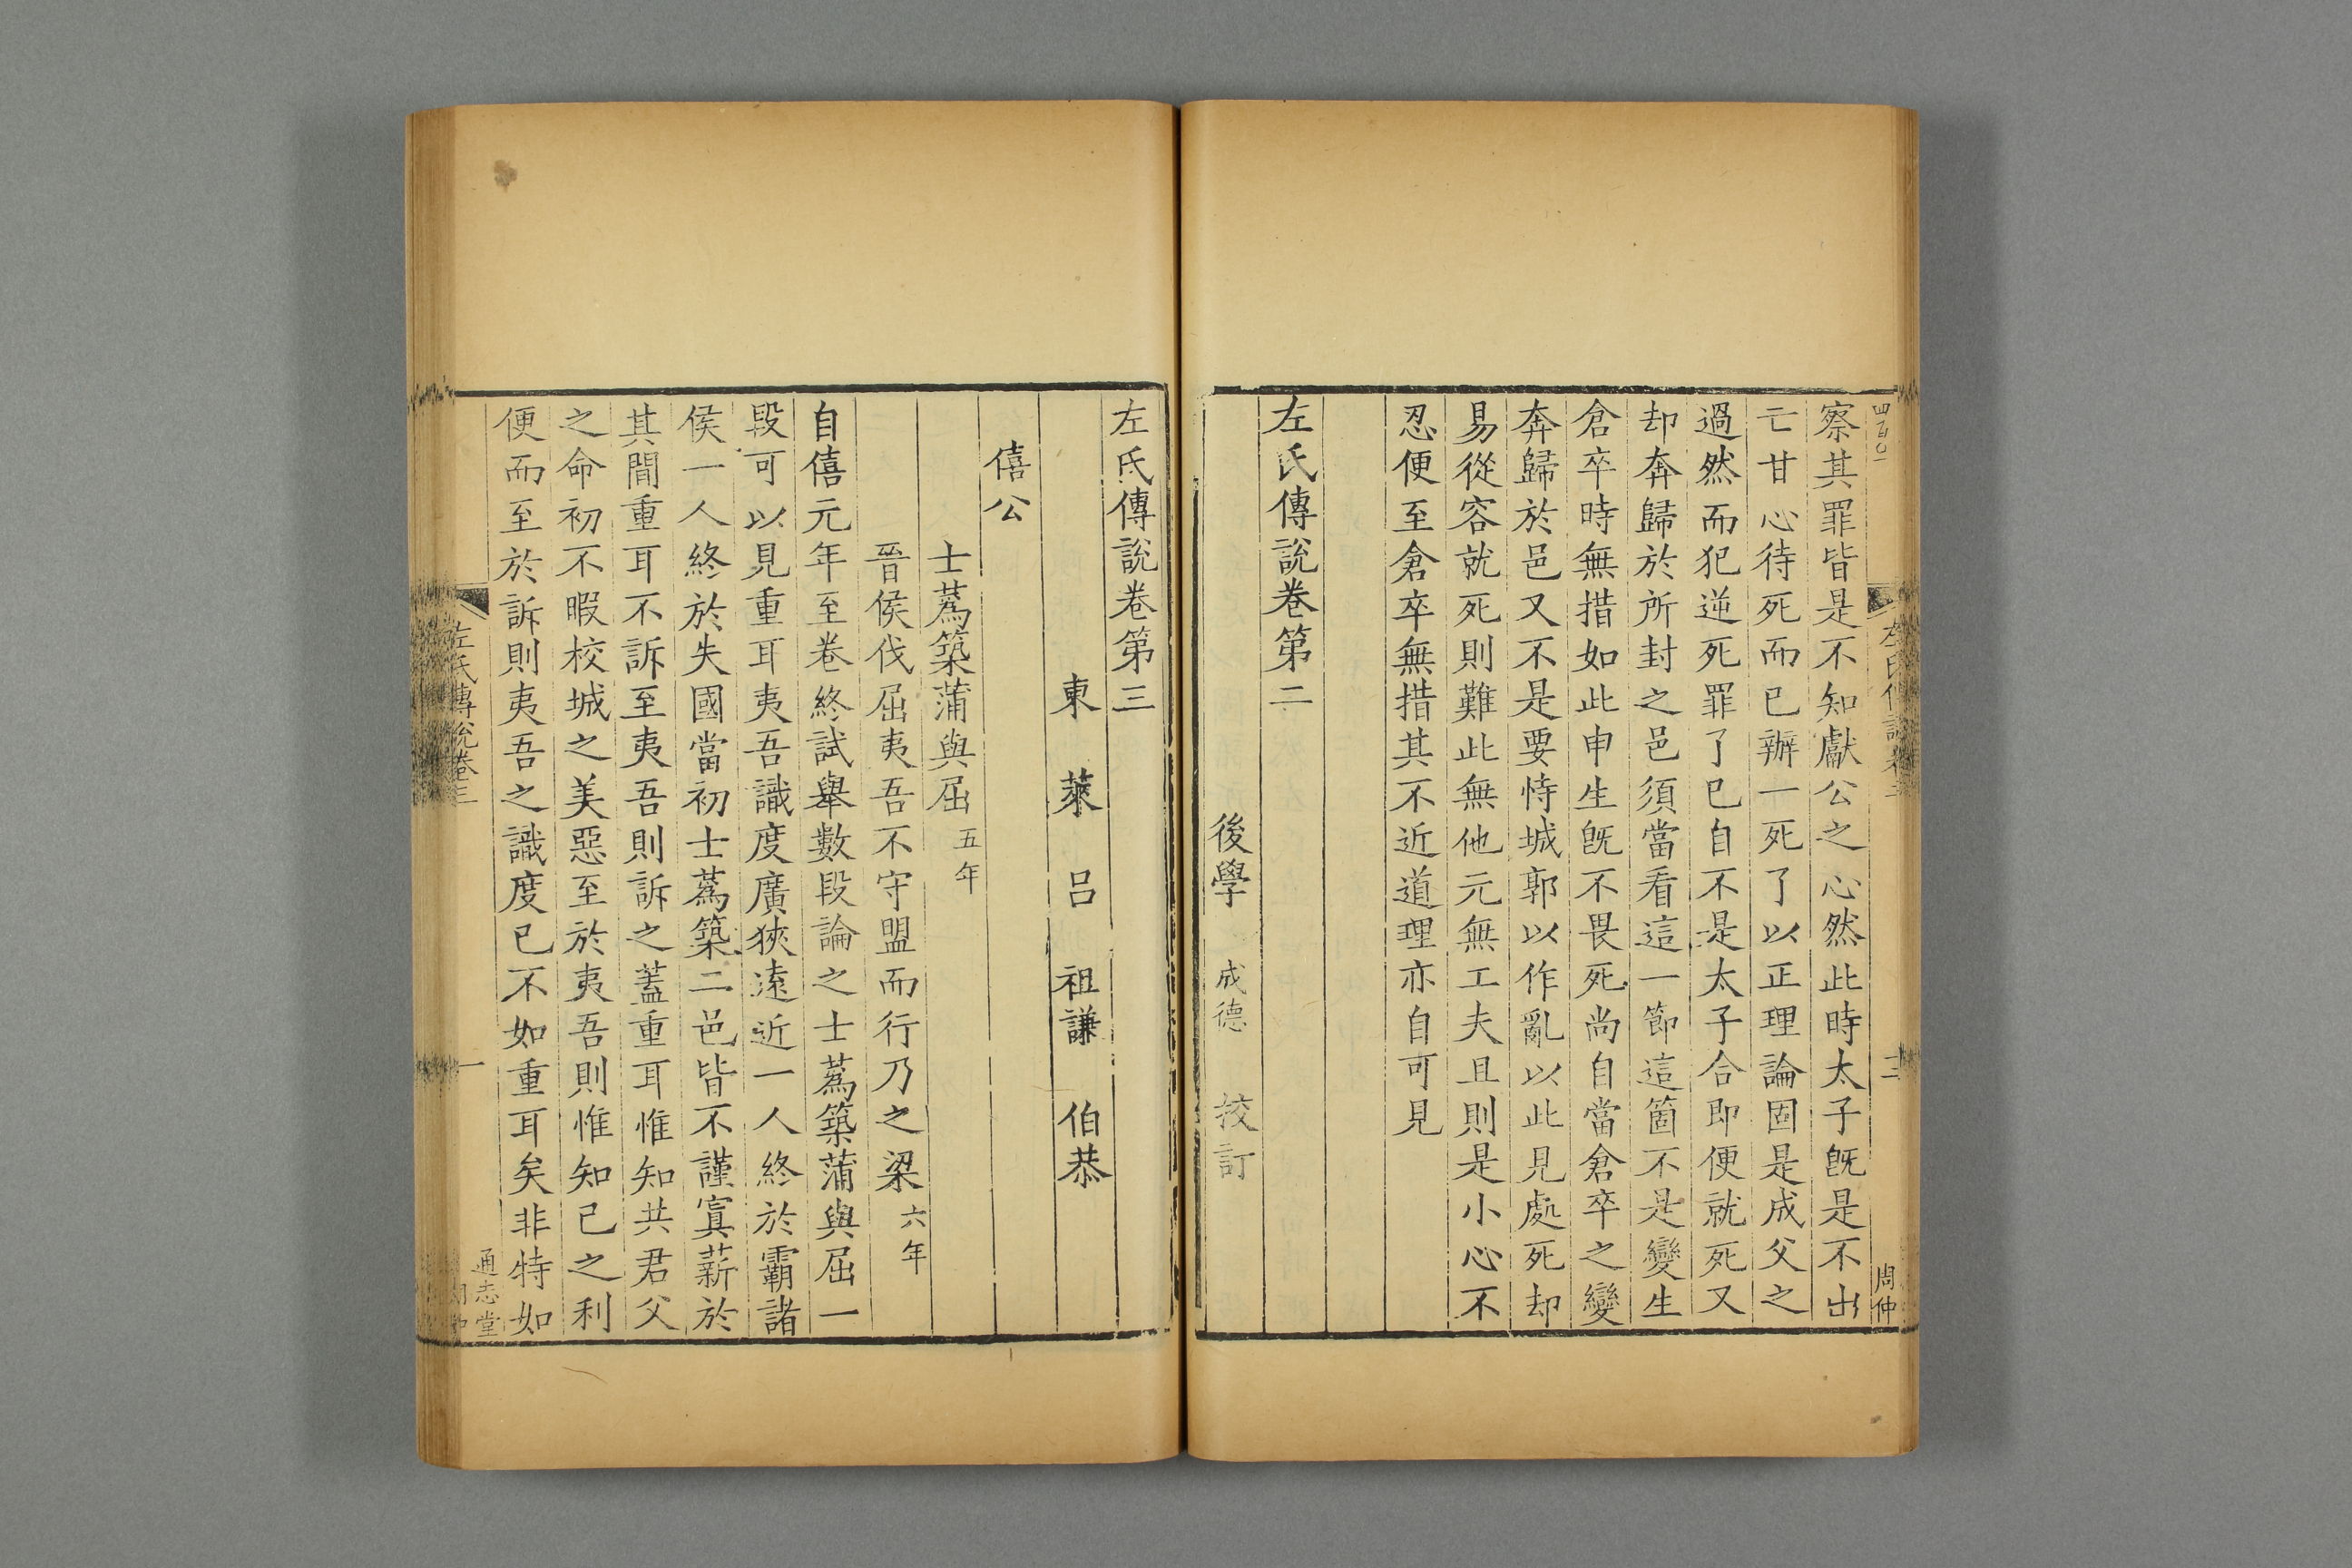 察其罪皆是不知獻公之心然此時太子旣是不出
亡甘心待死而已辦一死了以正理論固是成父之
過然而犯逆死罪了已自不是太子合即便就死又
却奔歸於所封之邑須當看這一節這箇不是變生
倉卒時無措如此申生旣不畏死尚自當倉卒之變
奔歸於邑又不是要恃城郭以作亂以此見處死却
易從容就死則難此無他元無工夫且則是小心不
忍便至倉卒無措其不近道理亦自可見
左氏傳說卷第二
後學 成德 挍訂
周仲
左氏傳說卷第三
東萊呂祖謙伯恭
僖公
士蔿築蒲與屈五年
晉侯伐屈夷吾不守盟而行乃之梁六年
自僖元年至卷終試舉數段論之士蔿築蒲與屈一
段可以見重耳夷吾識度廣狹遠近一人終於霸諸
侯一人終於失國當初士蔿築二邑皆不謹寘薪於
其間重耳不訴至夷吾則訴之蓋重耳惟知共君父
之命初不暇校城之美惡至於夷吾則惟知己之利
便而至於訴則夷吾之識度已不如重耳矣非特如
左氏傳說卷三
一
通志堂